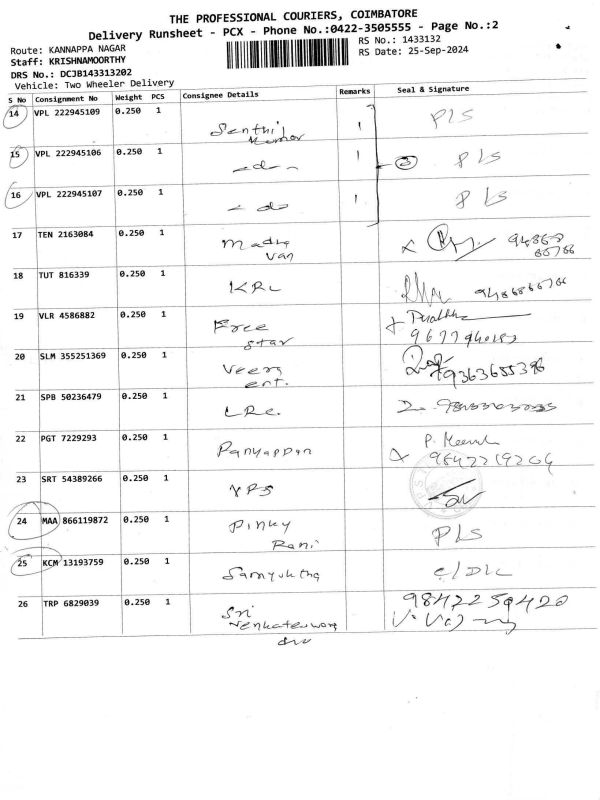 THE PROFESSIONAL COURIERS, COIMBATORE
Delivery Runsheet - PCX - Phone No.:0422-3505555 - Page No.:2
Route: KANNAPPA NAGAR RS No.: 1433132
Staff: KRISHNAMOORTHY RS Date: 25-Sep-2024
DRS No.: DCJB143313202
Vehicle: Two Wheeler Delivery
S No Consignment No Weight PCS Consignee Details Remarks Seal & Signature
14 VPL 222945109 0.250 1 Senthil 1 PLS
Kumar
15 VPL 222945106 0.250 1 -do- 1 3 PLS
16 VPL 222945107 0.250 1 -do- 1 PLS
17 TEN 2163084 0.250 1 Madha
van
18 TUT 816339 0.250 1 KRL
19 VLR 4586882 0.250 1 Free
star
20 SLM 355251369 0.250 1 Veera 9363655396
ent.
21 SPB 50236479 0.250 1 LRC.
22 PGT 7229293 0.250 1 Panyappan P. Meena
9842219204
23 SRT 54389266 0.250 1 VPS
24 MAA 866119872 0.250 1 Pinky PLS
Rani
25 KCM 13193759 0.250 1 Samyuktha C/DLC
26 TRP 6829039 0.250 1 Sri 9842259420
Venkateswara